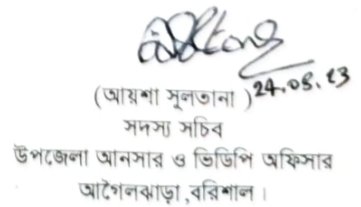 24.05.23
(আয়শা সুলতানা)
সদস্য সচিব
উপজেলা আনসার ও ভিডিপি অফিসার
আগৈলঝাড়া,বরিশাল।